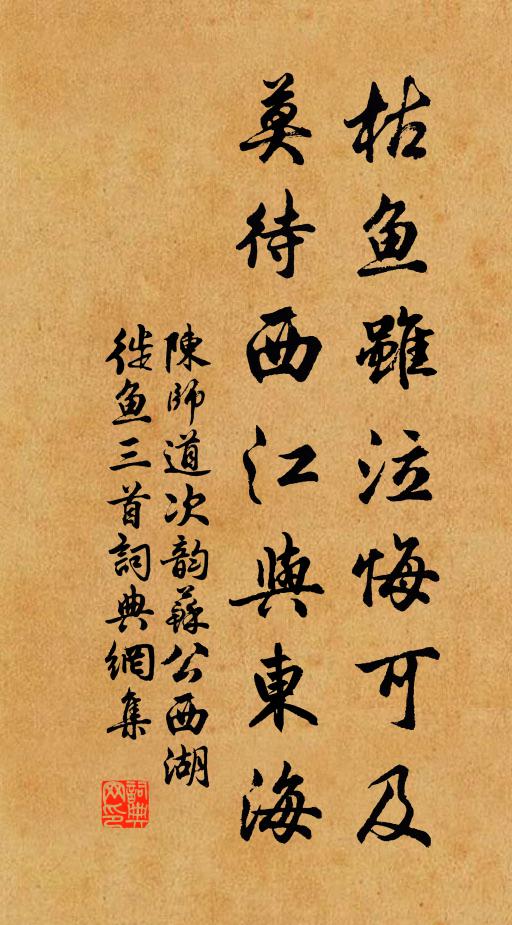 枯鱼雖泣悔可及
莫待西江與東海
陳師道次韵蘇公西湖
徙鱼三首詞典網集
詞典
网印